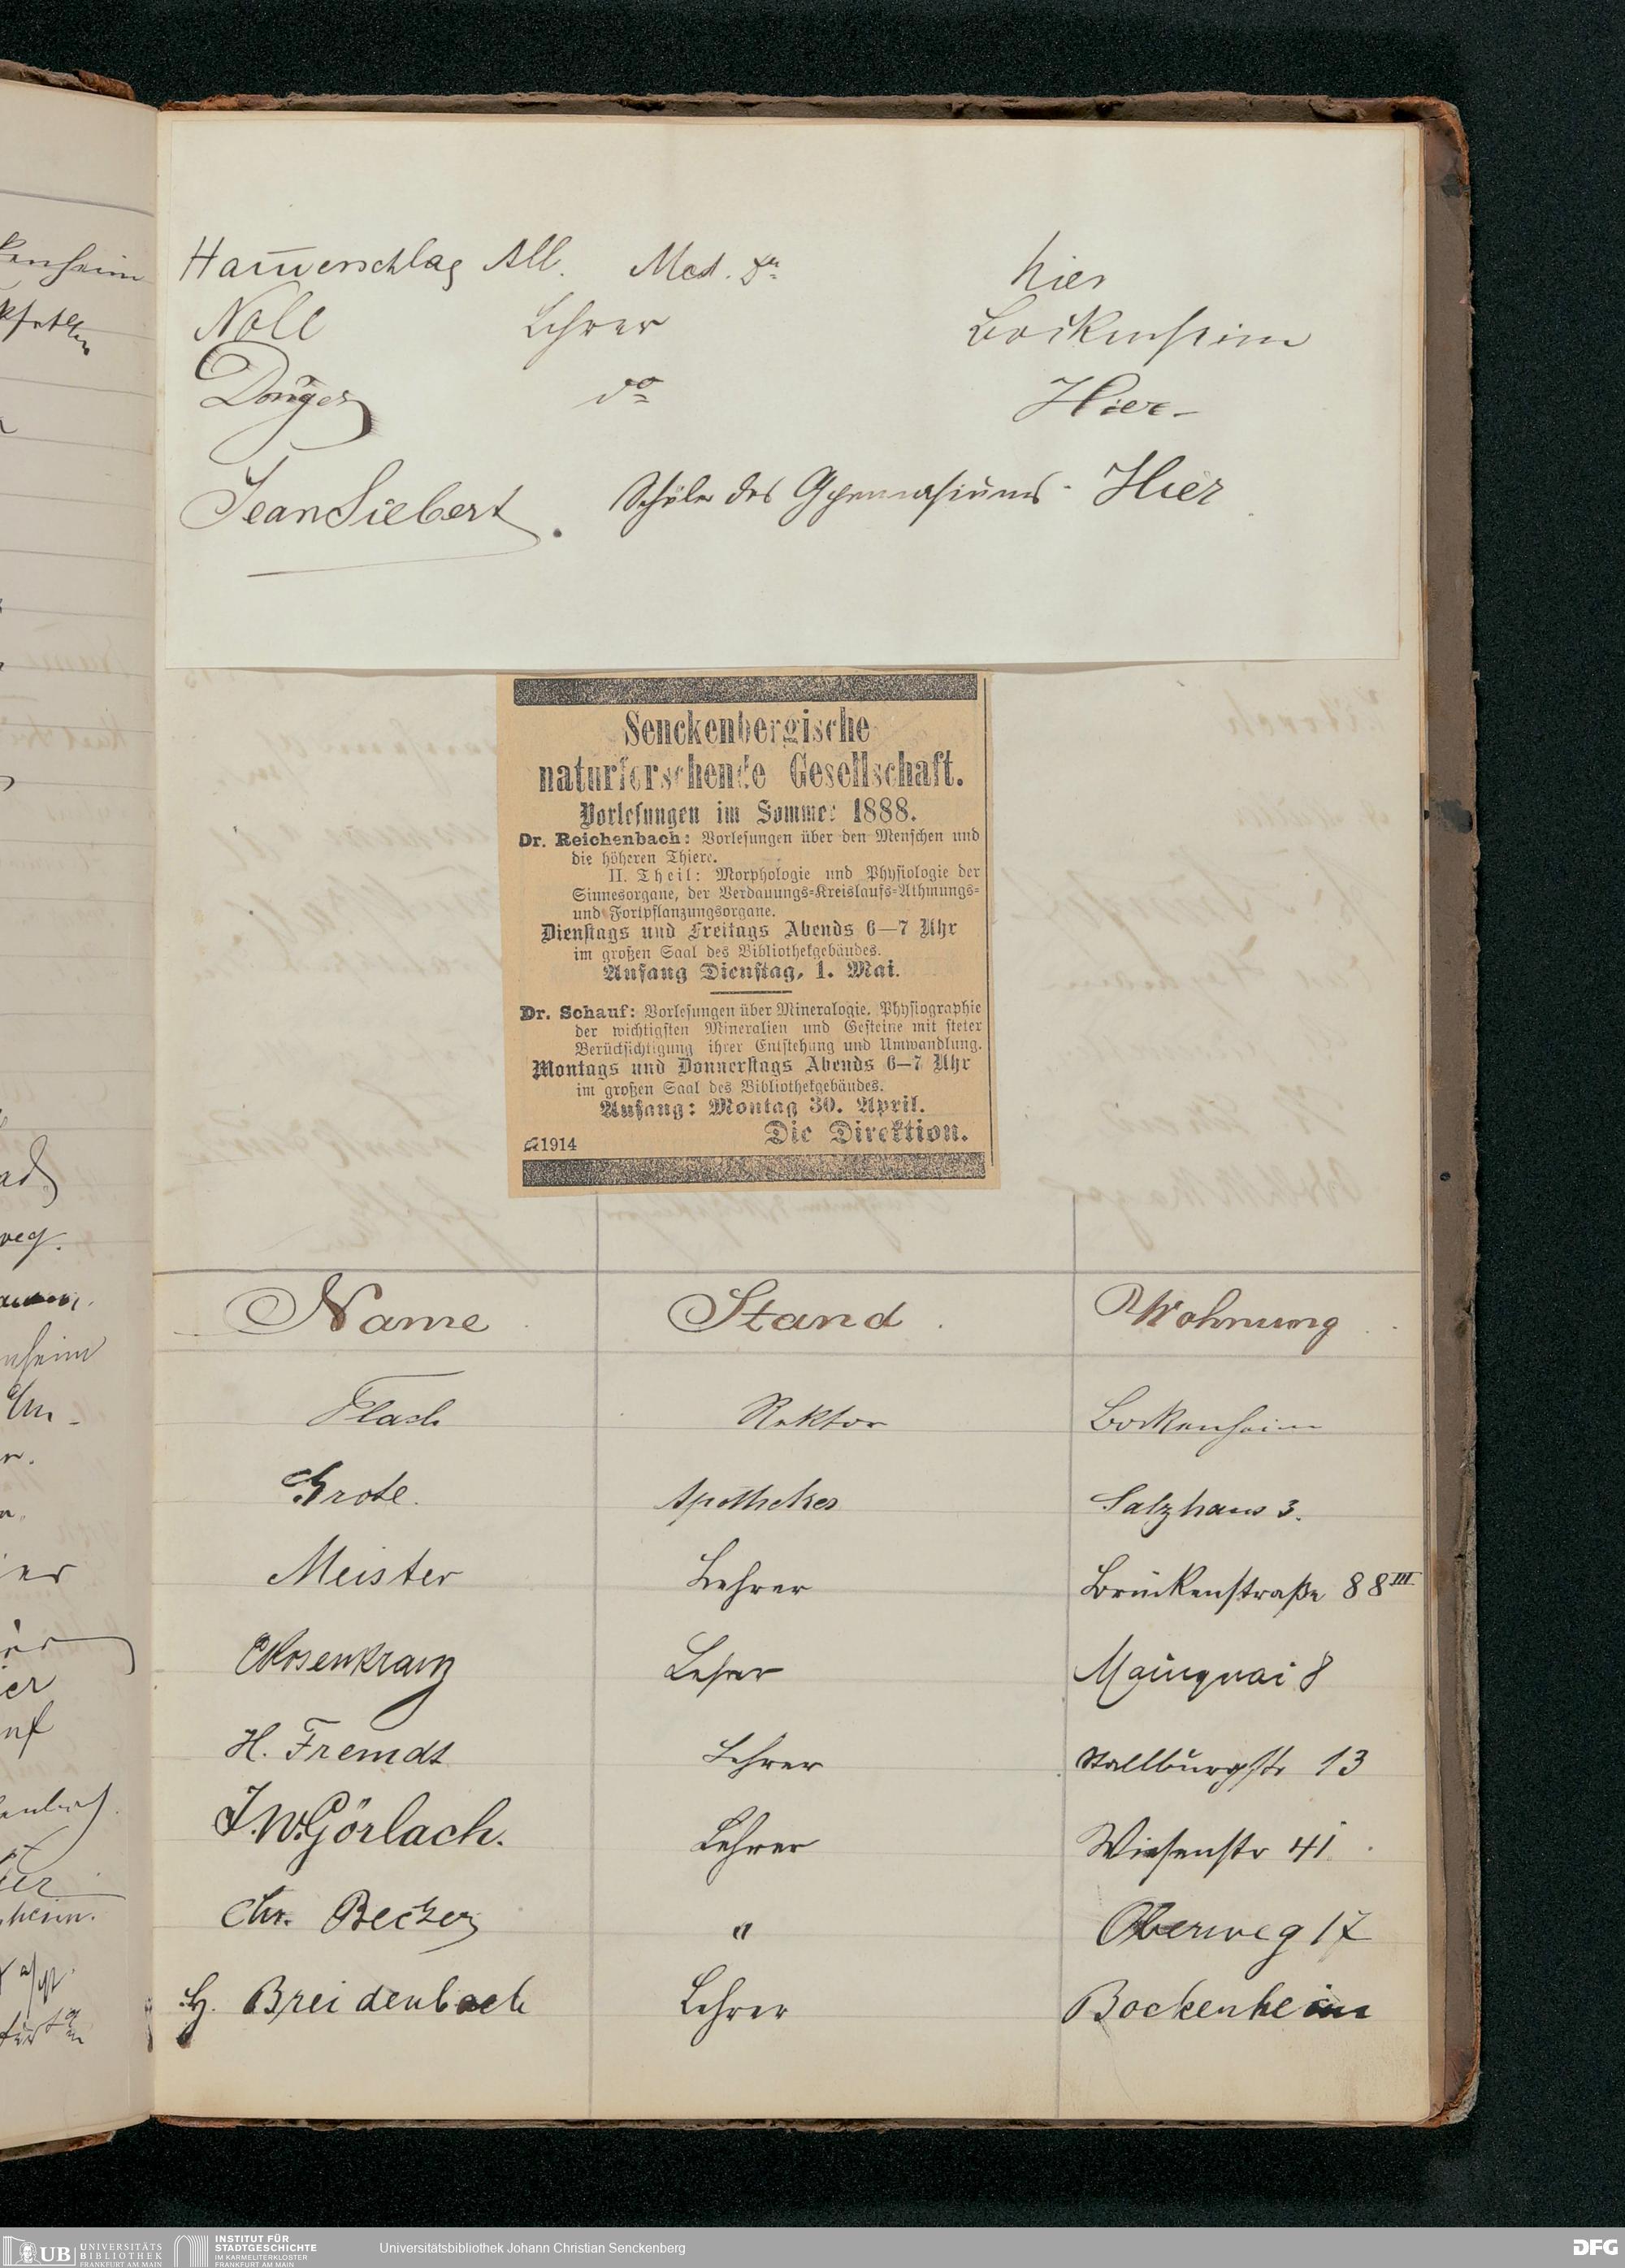 Ham̅erschlag All. Med. Dr. hier
Noll Lehrer Bockenheim
Dönges do Hier
Jean Siebert. Schüler des Gymnasiums. Hier
Senckenbergische
naturforschende Gesellschaft.
Vorlesungen im Sommer 1888.
Dr. Reichenbach: Vorlesungen über den Menschen und
die höheren Thiere.
II. Theil: Morphologie und Physiologie der
Sinnesorgane, der Verdauungs-Kreislaufs-Athmungs-
und Fortpflanzungsorgane.
Dienstags und Freitags Abends 6—7 Uhr
im großen Saal des Bibliothekgebäudes.
Anfang Dienstag, 1. Mai.
Dr. Schauf: Vorlesungen über Mineralogie. Physiographie
der wichtigsten Mineralien und Gesteine mit steter
Berücksichtigung ihrer Entstehung und Umwandlung.
Montags und Donnerstags Abends 6—7 Uhr
im großen Saal des Bibliothekgebäudes.
Anfang: Montag 30. April.
Die Direktion.
1914
Name Stand Wohnung
Flach Rektor Bockenheim
Grote. Apotheker Salzhaus 3.
Meister Lehrer Brückenstraße 88 III
Rosenkranz Lehrer Mainquai 8
H. Fremdt Lehrer Stallburgstr 13
J. W. Görlach. Lehrer Wiesenstr 41
Chr. Becker " Oberweg 17
H. Breidenbach Lehrer Bockenheim
UB UNIVERSITÄTS
BIBLIOTHEK
FRANKFURT AM MAIN
INSTITUT FÜR
STADTGESCHICHTE
IM KARMELITERKLOSTER
FRANKFURT AM MAIN
Universitätsbibliothek Johann Christian Senckenberg
DFG